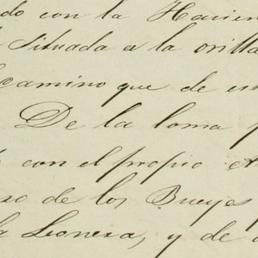 do con la Hacien
Situada a la orilla
camino que de es
De la loma
con el propio
so de los Bueyes
la Leonera, y de